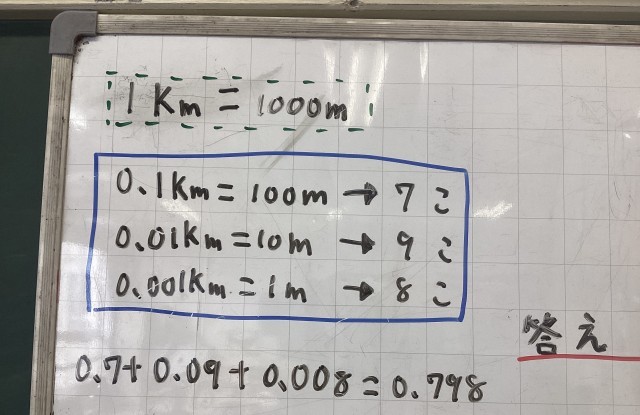 1Km = 1000m
0.1Km = 100m → 7こ
0.01Km = 10m → 9こ
0.001Km = 1m → 8こ
答え
0.7+0.09+0.008=0.798